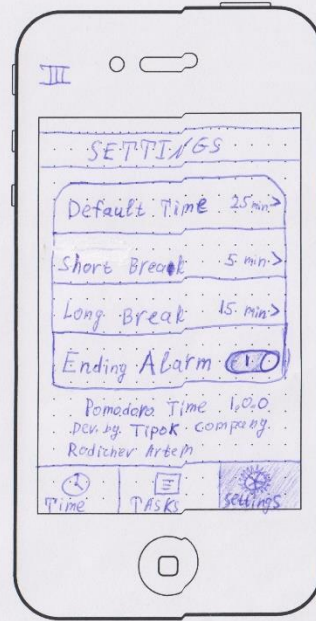 III
SETTINGS
Default Time 25 min >
Short Break 5 min >
Long Break 15 min >
Ending Alarm
Pomadara Time 1.0.0
Dev. by. Tipok company.
Radichev Artem
Time TASKS settings